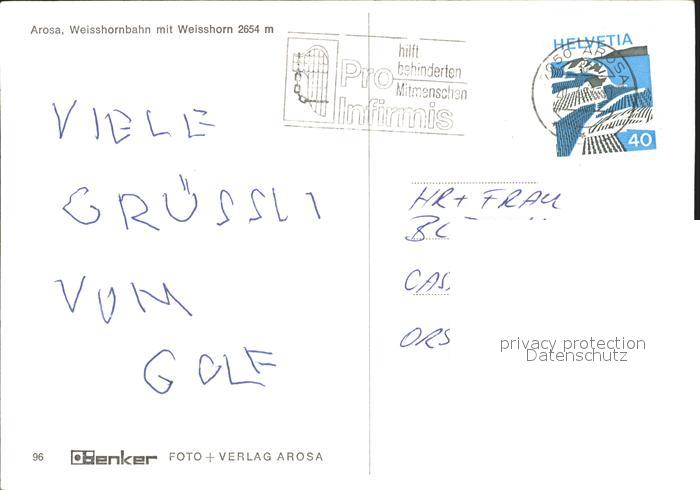 Arosa, Weisshornbahn mit Weisshorn 2654 m
Pro Infirmis
hilft
behinderten
Mitmenschen
HELVETIA
7050 AROSA
40
VIELE
GRÜSSLI
VOM
GOLF
HR + FRAU
CAS.
ORS
privacy protection
Datenschutz
96 Benker FOTO + VERLAG AROSA